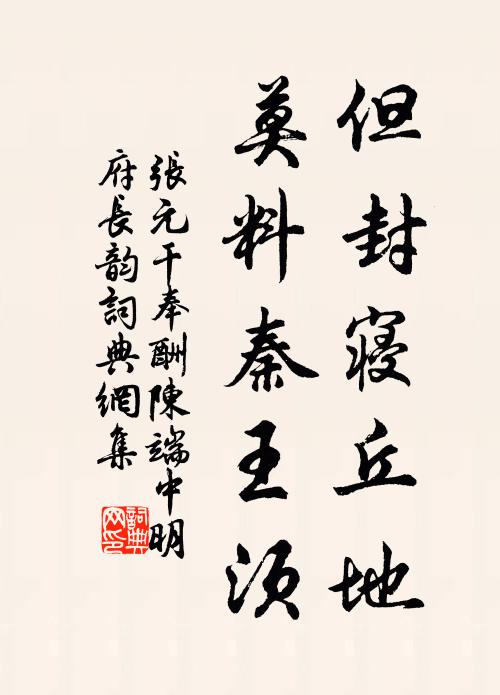 但封寢丘地
莫料秦王須
張元干奉酬陳端中明
府長韵詞典網集
詞典
网印